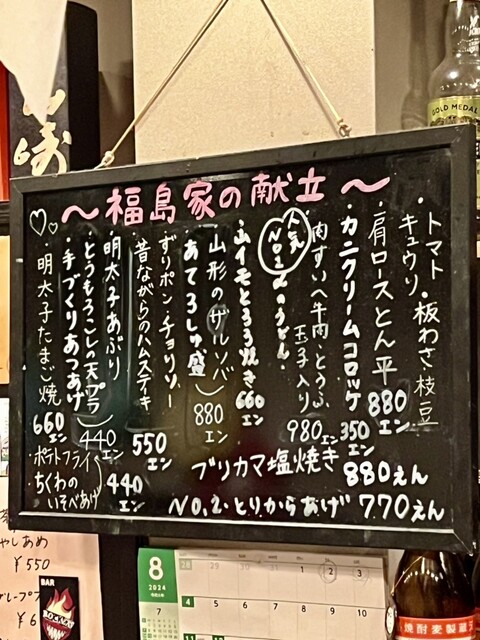 ～福島家の献立～
・トマト・板わさ枝豆
キュウリ
・肩ロースとん平 880エン
・カニクリームコロッケ 350エン
・肉すい(牛肉・とうふ
玉子入り) 980エン
人気
No.1
のうどん。
・山イモとろろ焼き 660エン
・山形のザルソバ
・あてろしゅ盛 880エン
・ずりポン・チョリソー
・昔ながらのハムステキ 550エン
・明太子あぶり
・とうもろこしの天プラ 440エン
・手づくりあつあげ
・明太子たまご焼 660エン
・ポテトフライ
・ちくわの
いそべあげ 440エン
ブリカマ塩焼き 880えん
No.2.とりからあげ 770えん
GOLD MEDAL
やしあめ
¥550
BAR
8
2024
28
1
2
3
7
4
10
11
焼酎麦製